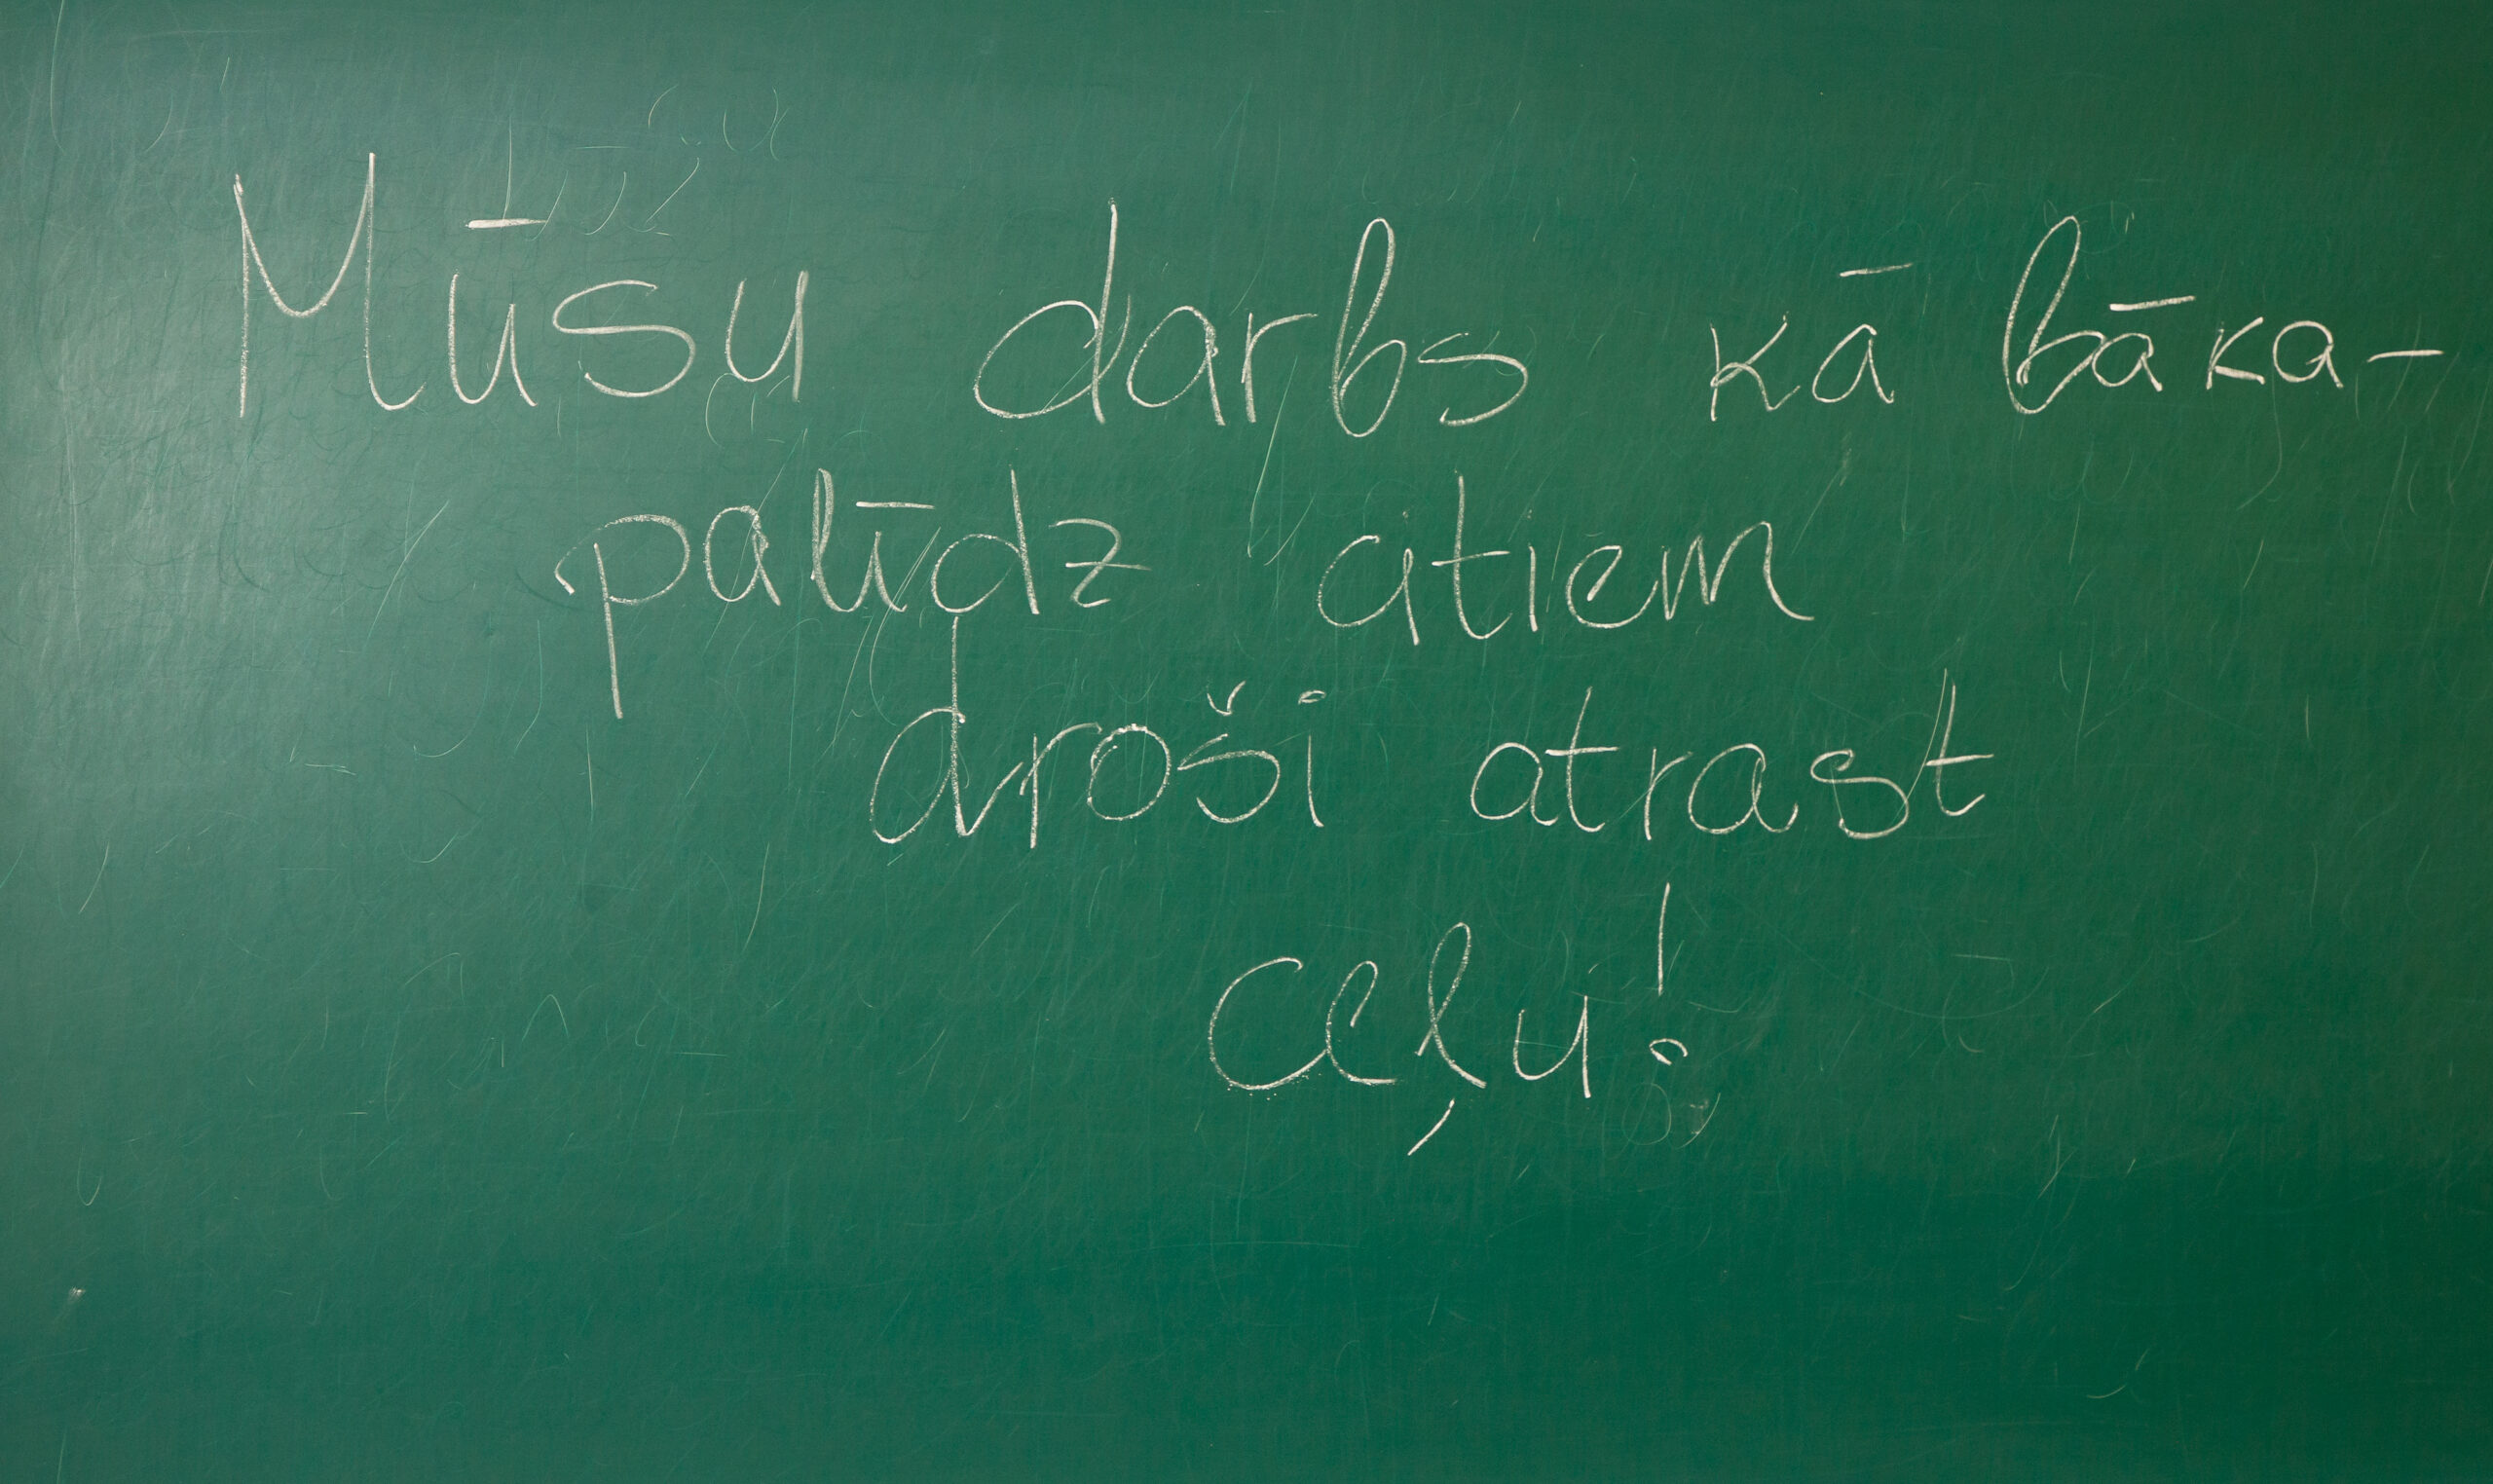 Mūsu darbs kā bāka-
palīdz citiem
droši atrast
ceļu!